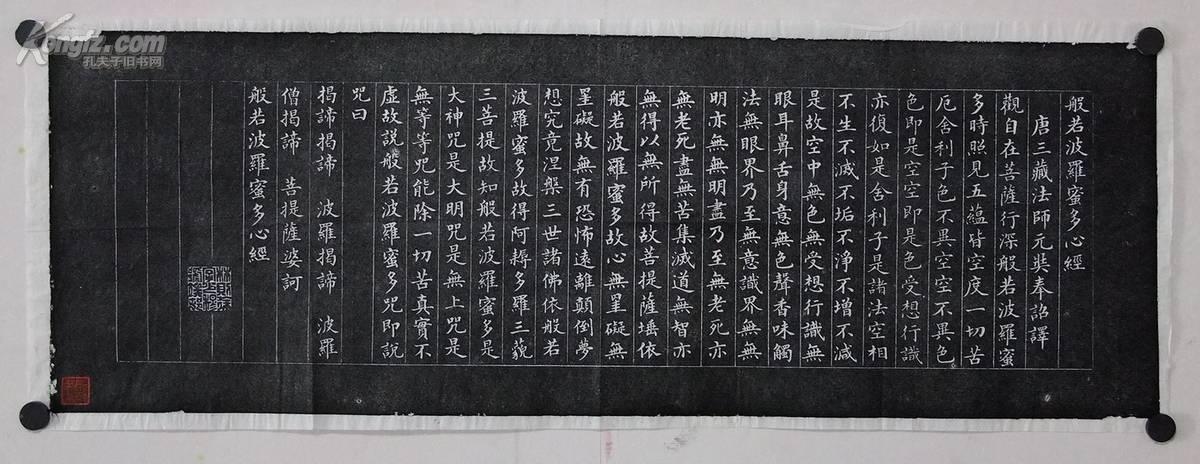 般若波羅蜜多心經
唐三藏法師元奘奉詔譯
觀自在菩薩行深般若波羅蜜
多時照見五蘊皆空度一切苦
厄舍利子色不異空空不異色
色即是空空即是色受想行識
亦復如是舍利子是諸法空相
不生不滅不垢不淨不增不減
是故空中無色無受想行識無
眼耳鼻舌身意無色聲香味觸
法無眼界乃至無意識界無無
明亦無無明盡乃至無老死亦
無老死盡無苦集滅道無智亦
無得以無所得故菩提薩埵依
般若波羅蜜多故心無罣礙無
罣礙故無有恐怖遠離顛倒夢
想究竟涅槃三世諸佛依般若
波羅蜜多故得阿耨多羅三藐
三菩提故知般若波羅蜜多是
大神咒是大明咒是無上咒是
無等等咒能除一切苦真實不
虛故說般若波羅蜜多咒即說
咒曰
揭諦揭諦 波羅揭諦 波羅
僧揭諦 菩提薩婆訶
般若波羅蜜多心經
Kongfz.com
孔夫子旧书网